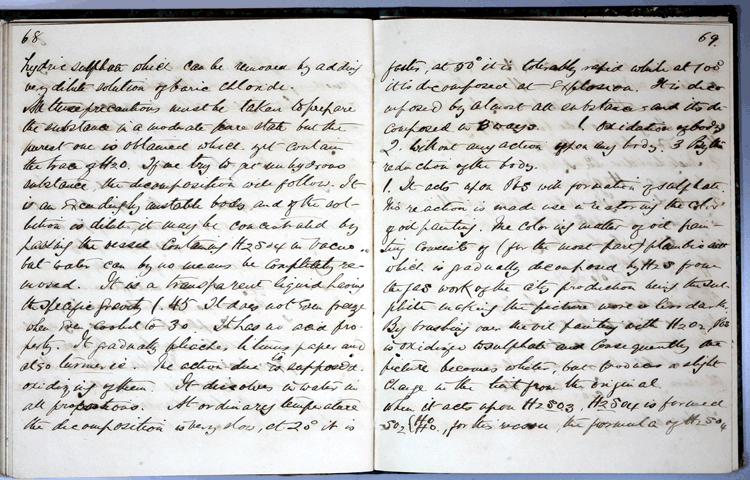 68
hydric sulphate which can be removed by adding
very dilute solution of baric chloride.
All these precautions must be taken to prepare
the substance in a moderate pure state but the
purest one is obtained which yet contain
the trace of H2O. If we try to get anhydrous
substance, the decomposition will follow. It
is an exceedingly unstable body and if the sol-
bution is dilute, it may be concentrated by
passing the vessel containing H2SO4 in vacuo..
but water can by no means be completely re-
moved. It is a transparent liquid having
the specific gravity 1.45 It does not even freeze
when even cooled to 30 It has no acid pro-
perty. It gradually bleaches litmus paper and
also turmeric. The action due to supposed
oxidizing of them. It dissolves in water in
all proportions. At ordinary temperature
the decomposition is very slow, at 20° it is
69.
faster, at 50° it is tolerably rapid while at 100°
it is decomposed at explosion. It is deco
mposed by almost all substances and it is de
composed in 3 ways. 1. Oxidation of body
2. Without any action upon any body. 3 By the
reduction of the body.
1. It acts upon PbS with formation of sulphate.
This reaction is made use in restoring the color
of oil painting. The coloring matter of oil pain-
ting consists of (for the most part) plumbic
which is gradually decomposed by H2S from
the gas work of the city production being the sul-
phide making the picture more or less dark:
By brushing over the oil painting with H2O2, PbS
is oxidized to sulphate and consequently the
picture becomes whiter, but produces a slight
change in the tint from the original
when it acts upon H2SO3, H2SO4 is formed
SO2 { HO HO., for this reason, the formula of H2SO4